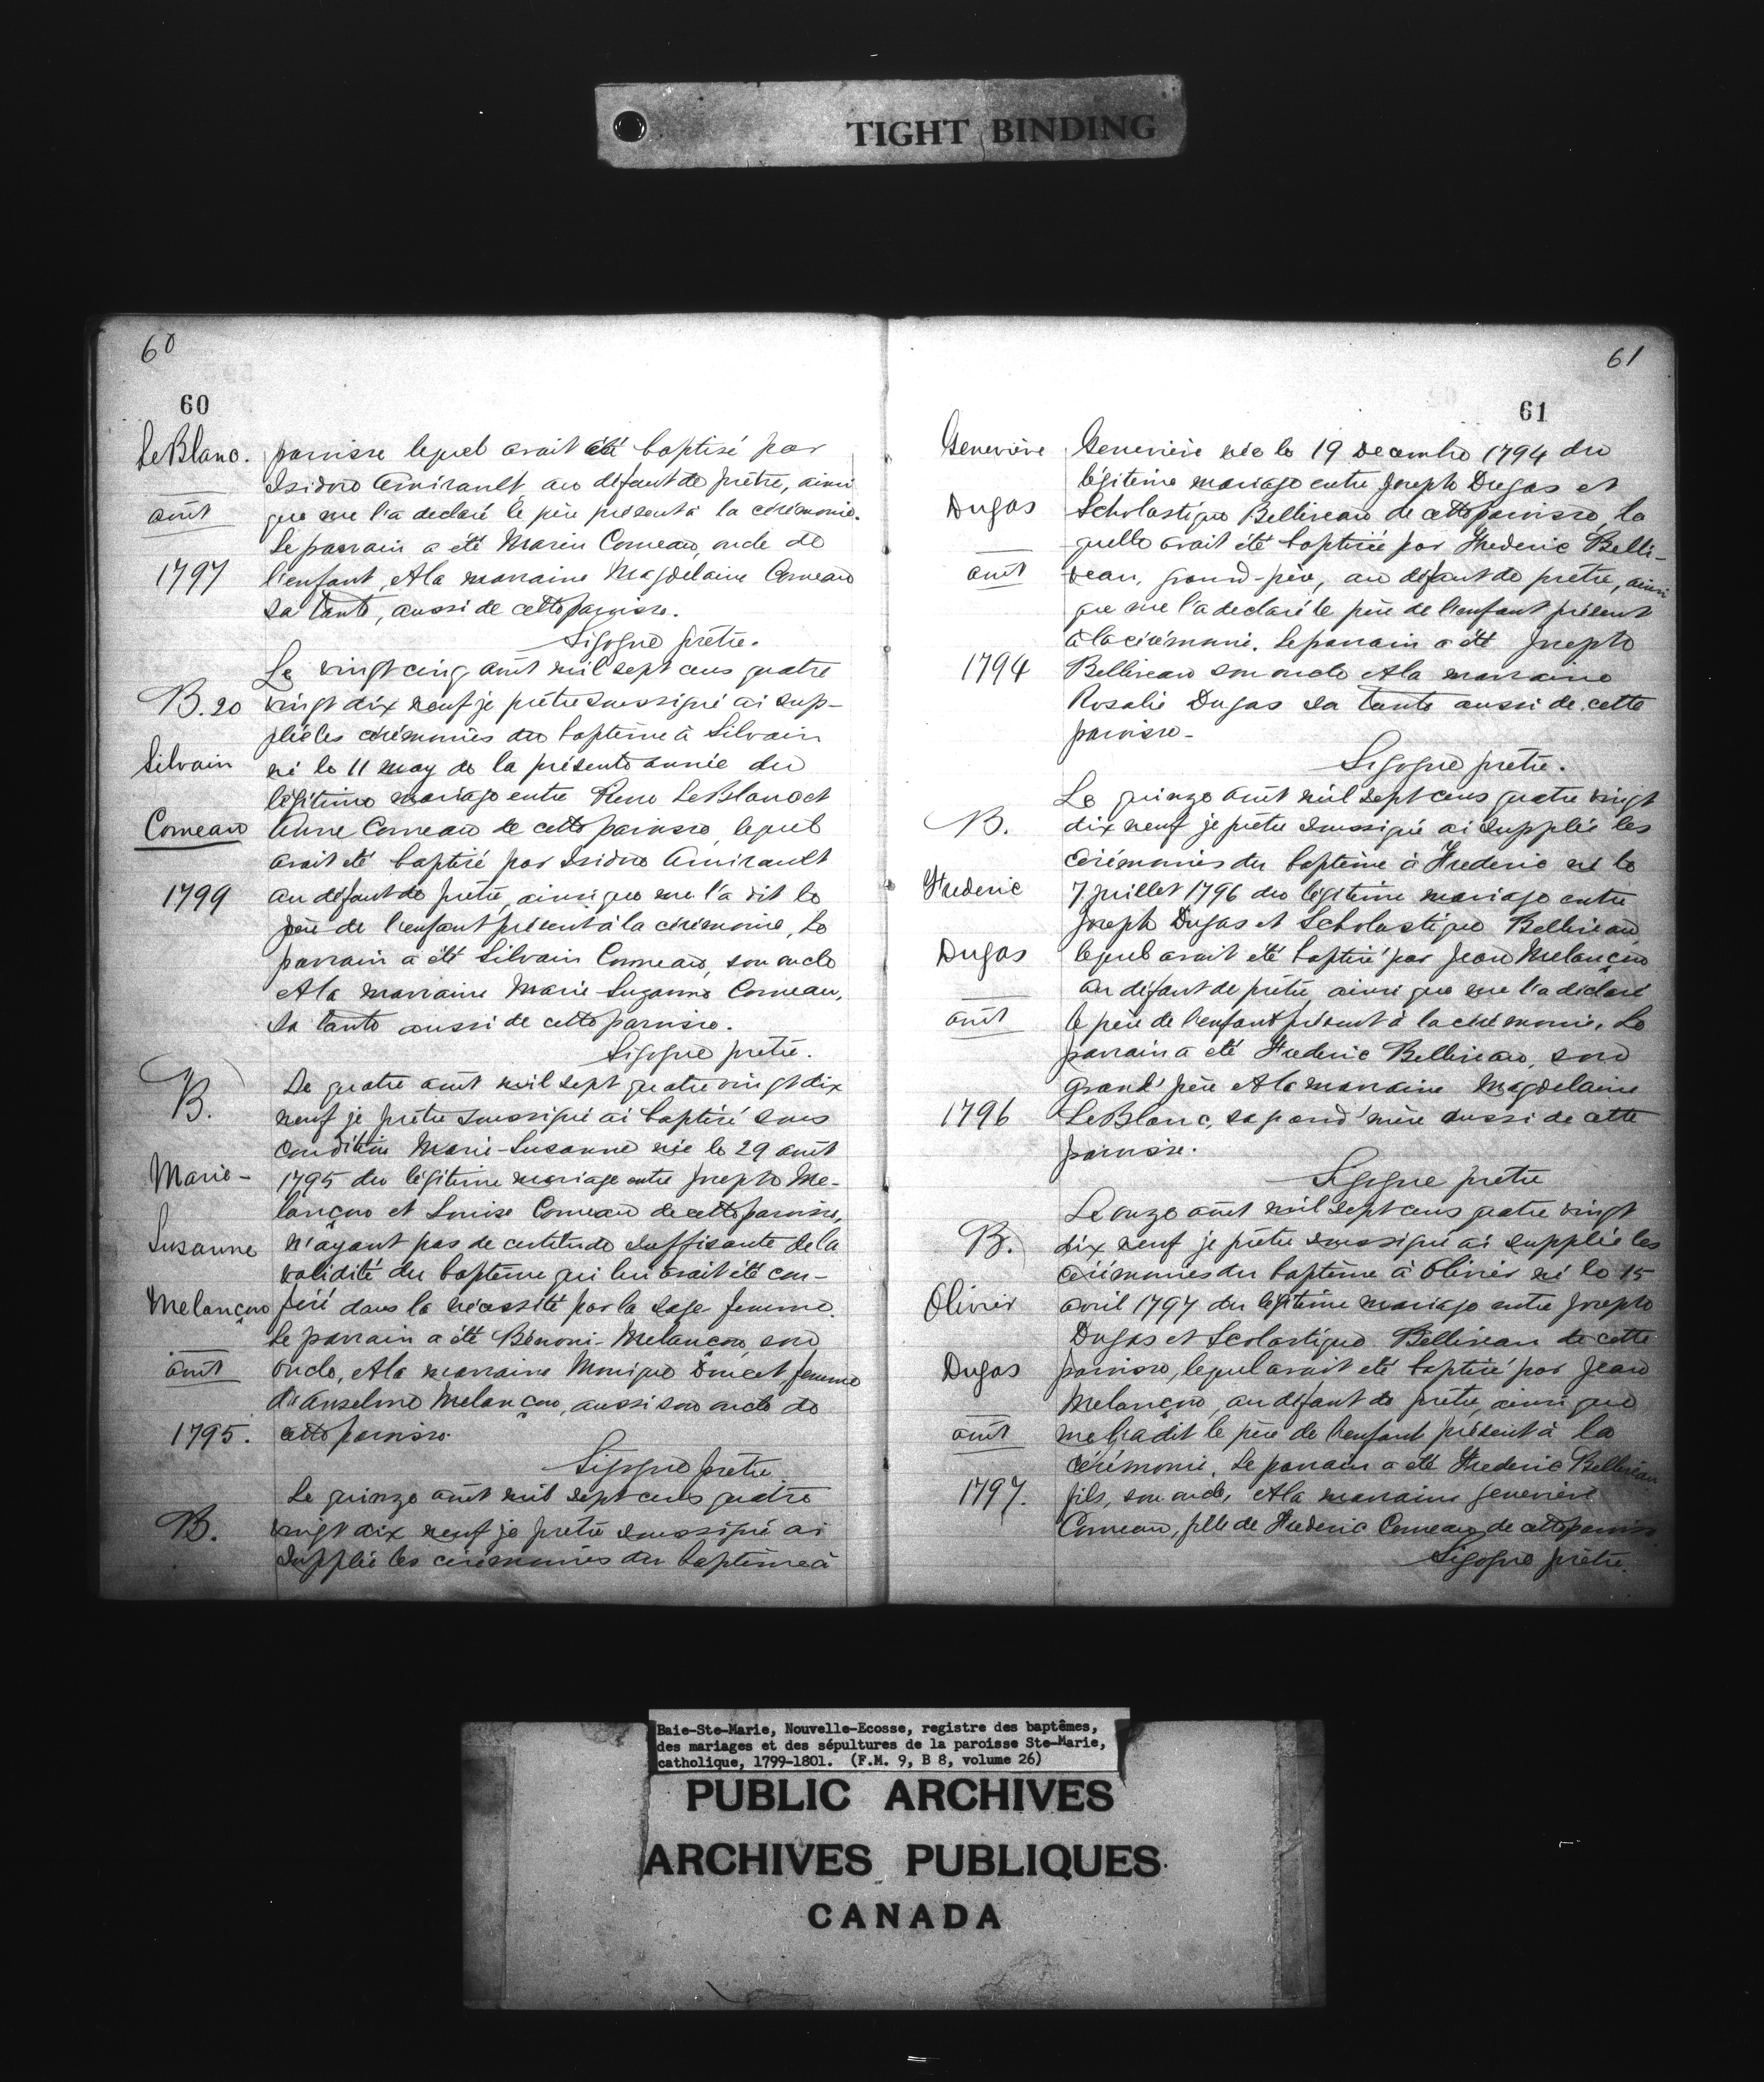 TIGHT BINDING
60
60
LeBlanc.
août
1797
paroisse lequel avait été baptisé par
Isidore Amirault au défaut de prêtre, ainsi
que me l'a declaré le père présent à la cérémonie.
Le parrain a été Marin Comeau, oncle de
l'enfant, et la marraine Magdelaine Comeau
sa tante, aussi de cette paroisse.
Sigogne prêtre.
B. 20
Silvain
Comeau
1799
Le vingt cinq août mil sept cens quatre
vingt dix neuf je prêtre soussigné ai sup-
pléé les cérémonies du baptême à Silvain
né le 11 may de la présente année du
légitime mariage entre Rene LeBlanc et
Anne Comeau de cette paroisse, lequel
avait été baptisé par Isidore Amirault
au défaut de prêtre, ainsi que me l'a dit le
père de l'enfant présent à la cérémonie, Le
parrain a été Silvain Comeau, son oncle
et la marraine Marie-Suzanne Comeau,
sa tante aussi de cette paroisse.
Sigogne prêtre.
B.
Marie-
Susanne
Melançon
août
1795.
Le quatre août mil sept quatre vingt dix
neuf je prêtre soussigné ai baptisé sous
condition Marie-Susanne née le 29 août
1795 du légitime mariage entre Joseph Me-
lançon et Louise Comeau de cette paroisse,
n'ayant pas de certitude suffisante de la
validité du baptême qui lui avait été con-
féré dans la nécessité par la sage femme.
Le parrain a été Bénoni-Melançon, son
oncle, et la marraine Monique Doucet, femme
d'Anselme Melançon, aussi son oncle de
cette paroisse.
Sigogne prêtre.
B.
Le quinze août mil sept cens quatre
vingt dix neuf je prêtre soussigné ai
supplée les cérémonies du baptême à
61
61
Geneviève
Dugas
août
1794
Geneviève née le 19 decembre 1794 du
légitime mariage entre Joseph Dugas et
Scholastique Belliveau de cette paroisse, la
quelle avait été baptisée par Frederic Belli-
veau, grand-père, au défaut de prêtre, ainsi
que me l'a declaré le père de l'enfant présent
à la cérémonie. Le parrain a été Joseph
Belliveau son oncle et la marraine
Rosalie Dugas sa tante aussi de cette
paroisse-
Sigogne prêtre.
B.
Frederic
Dugas
août
1796
Le quinze août mil sept cens quatre vingt
dix neuf je prêtre soussigné ai supplée les
cérémonies du baptême à Frederic né le
7 juillet 1796 du légitime mariage entre
Joseph Dugas et Scholastique Belliveau
lequel avait été baptisé par Jean Melançon
au défaut de prêtre, ainsi que me l'a déclaré
le père de l'enfant présent à la cérémonie. Le
parrain a été Frederic Belliveau, son
grand'père et la marraine Magdelaine
LeBlanc, sa grand'mère aussi de cette
paroisse.
Sigogne prêtre
B.
Olivier
Dugas
août
1797.
Le onze août mil sept cens quatre vingt
dix neuf je prêtre soussigné ai supplée les
cérémonies du baptême à Olivier né le 15
avril 1797 du légitime mariage entre Joseph
Dugas et Scolastique Belliveau de cette
paroisse, lequel avait été baptisé par Jean
Melançon, au défaut de prêtre, ainsi que
me l'a dit le père de l'enfant présent à la
cérémonie. Le parrain a été Frederic Belliveau
fils, son oncle, et la marraine Geneviève
Comeau, fille de Frederic Comeau de cette paroisse
Sigogne prêtre.
Baie-Ste-Marie, Nouvelle-Ecosse, registre des baptêmes,
des mariages et des sépultures de la paroisse Ste-Marie,
catholique, 1799-1801. (F.M. 9, B 8, volume 26)
PUBLIC ARCHIVES
ARCHIVES PUBLIQUES
CANADA